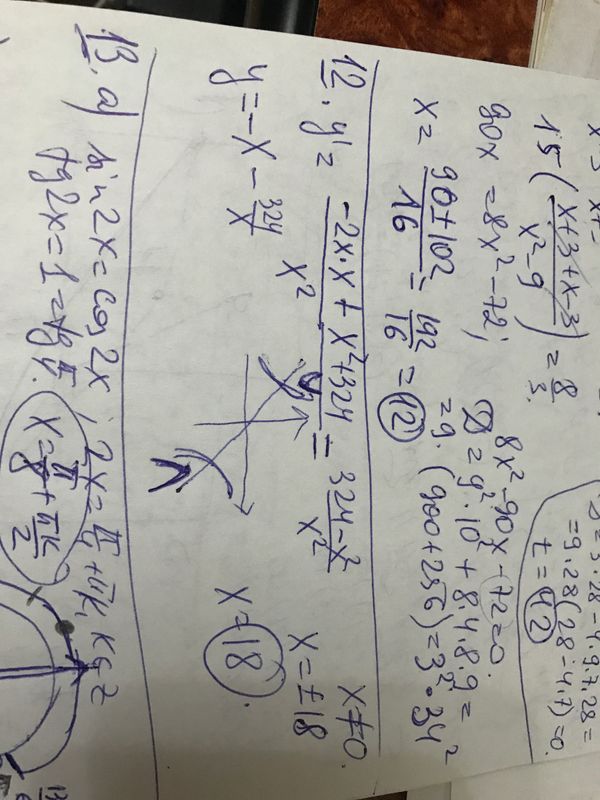 15 (x+3+x-3 / x²-9) = 8/3.
90x = 8x² - 72;
8x² - 90x - 72 = 0.
D = 9²·10² + 8·4·8·9 =
= 9·(900+256) = 3²·34²
x = 90±102 / 16 = 192/16 = 12
12. y' = -2x·x + x²+324 / x² = 324-x² / x²
x≠0.
x = ±18
y = -x - 324/x
x = 18.
13. a) sin 2x = cos 2x ; 2x = π/4 + πk, k∈Z
tg2x = 1 = tg π/4. x = π/8 + πk/2
= 9·28(28-4·7) = 0.
t = 42